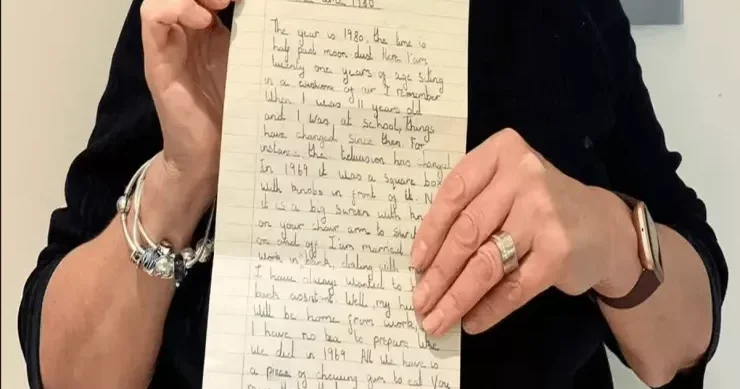 1980
The year is 1980, the time is
half past moon-dust. Here I am
twenty one years of age siting
in a cushion of air I remember
When I was 11 years old
and I was at school, things
have changed since then. For
instance the television has changed
In 1969 it was a square box
with knobs in front of it. N
it is a big screen with
on your chair arm to
on and off I am married
work in bank, dealing with m
I have always wanted to b
bank assistant. Well, my hu
will be home from work,
I have no tea to prepare like
We did in 1969. All we have is
a piece of chewing gum to eat